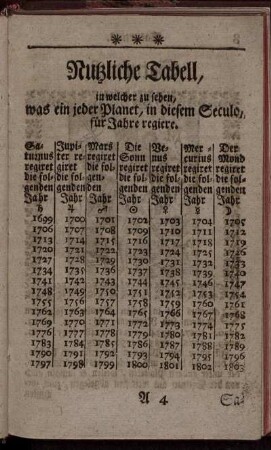 * * *
Nutzliche Tabell,
in welcher zu sehen,
was ein jeder Planet, in diesem Seculo,
für Jahre regiere.
Sa- Jupi- Mars Die Ve- Mer Der
turnus ter re- regiret Sonn nus curius Mond
regiret giret die fol- regiret regiret regiret regiret
die fol- die fol- gen- die fol- die fol- die fol- die fol-
genden genden den genden genden genden genden
Jahr Jahr Jahr Jahr Jahr Jahr Jahr
♄ ♃ ♂ ☉ ♀ ☿ ☽
1699 1700 1701 1702 1703 1704 1705
1706 1707 1708 1709 1710 1711 1712
1713 1714 1715 1716 1717 1718 1719
1720 1721 1722 1723 1724 1725 1726
1727 1728 1729 1730 1731 1732 1733
1734 1735 1736 1737 1738 1739 1740
1741 1742 1743 1744 1745 1746 1747
1748 1749 1750 1751 1752 1753 1754
1755 1756 1757 1758 1759 1760 1761
1762 1763 1764 1765 1766 1767 1768
1769 1770 1771 1772 1773 1774 1775
1776 1777 1778 1779 1780 1781 1782
1783 1784 1785 1786 1787 1788 1789
1790 1791 1792 1793 1794 1795 1796
1797 1798 1799 1800 1801 1802 1803
A 4 Sa-